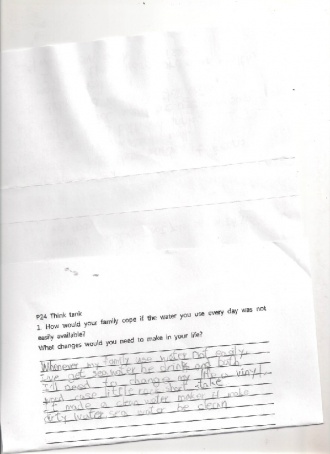 P24 Think tank
1. How would your family cope if the water you use every day was not
easily available?
What changes would you need to make in your life?
Whenever my family use water not easily,
we get sea water be drink and bath
I'll need to change my life
little
make a clean water maker it make
dirty water sea water be clean